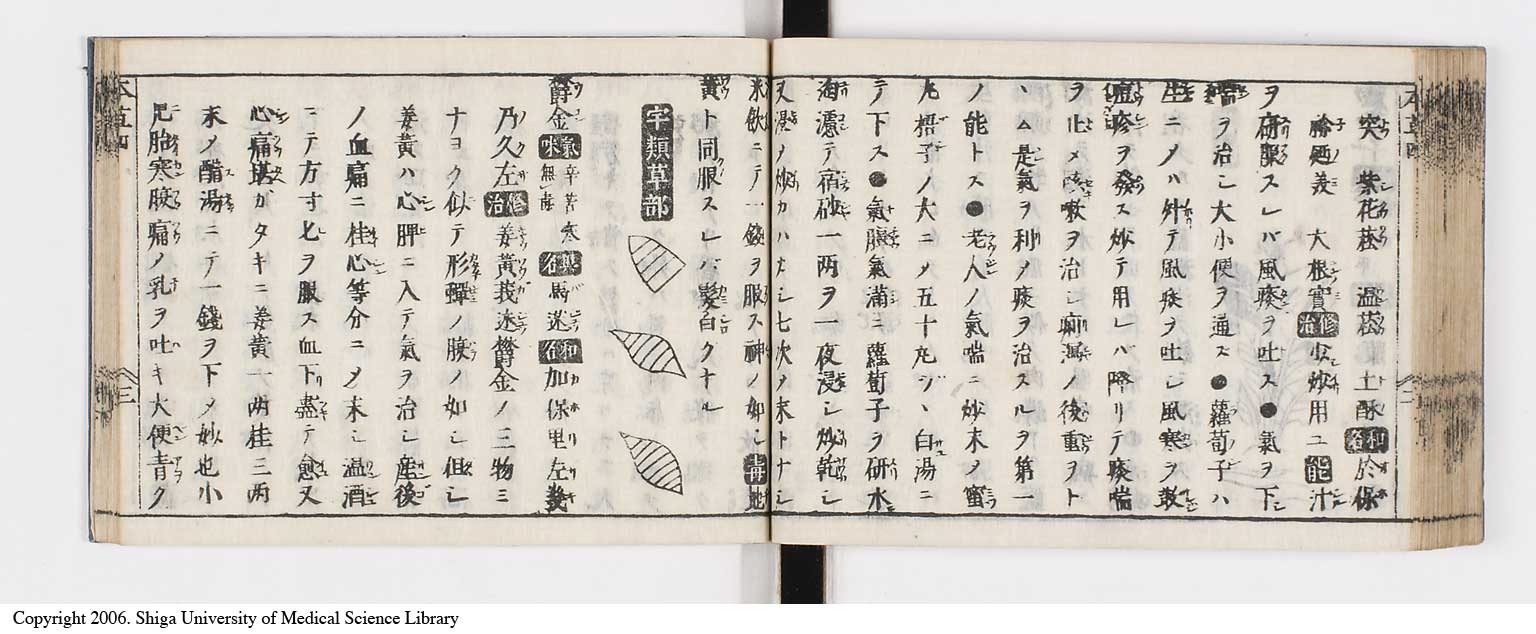 突 紫花菘 温菘 土酥 和名 於保
大根實 修治 少炒用ユ 能 汁
ヲ研服スレバ風痰ヲ吐ス●氣ヲ下
ヲ治シ大小便ヲ通ス●蘿蔔子ハ
生ニメハ外テ風痰ヲ吐シ風寒ヲ散
瘡疹ヲ發ス炒テ用レハ降リテ痰喘
ヲ止メ咳嗽ヲ治シ痢ノ後重ヲト
ム是氣ヲ利メ痰ヲ治スルヲ第一
ノ能トス●老人ノ氣喘ニ炒末ノ蜜
丸梧子ノ大ニメ五十丸ヅヽ白湯ニ
テ下ス●氣脹氣滿ニ蘿蔔子ヲ研水
淘濾テ宿砂一两ヲ一夜浸シ炒乾シ
又浸メ炒カハカシ七次メ末トナシ
米飲ニテ一錢ヲ服ス神ノ如シ 毒 地
黄ト同服スレバ髪白クナル
宇類草部
欝金 氣味 辛苦寒無毒 異名 馬迷 和名 加保里左
乃久左 修治 姜黄莪迷欝金ノ三物ミ
ナヨク似テ形蟬ノ腹ノ如シ但シ
姜黄ハ心脾ニ入テ氣ヲ治シ産後
ノ血痛ニ桂心等分ニメ末シ温酒
ニテ方寸七ヲ服ス血下リ盡テ愈又
心痛堪ガタキニ姜黄一两桂三两
末メ醋湯ニテ一錢ヲ下メ妙也小
兒胎寒腹痛ノ乳ヲ吐キ大便青ク
三
Copyright 2006. Shiga University of Medical Science Library